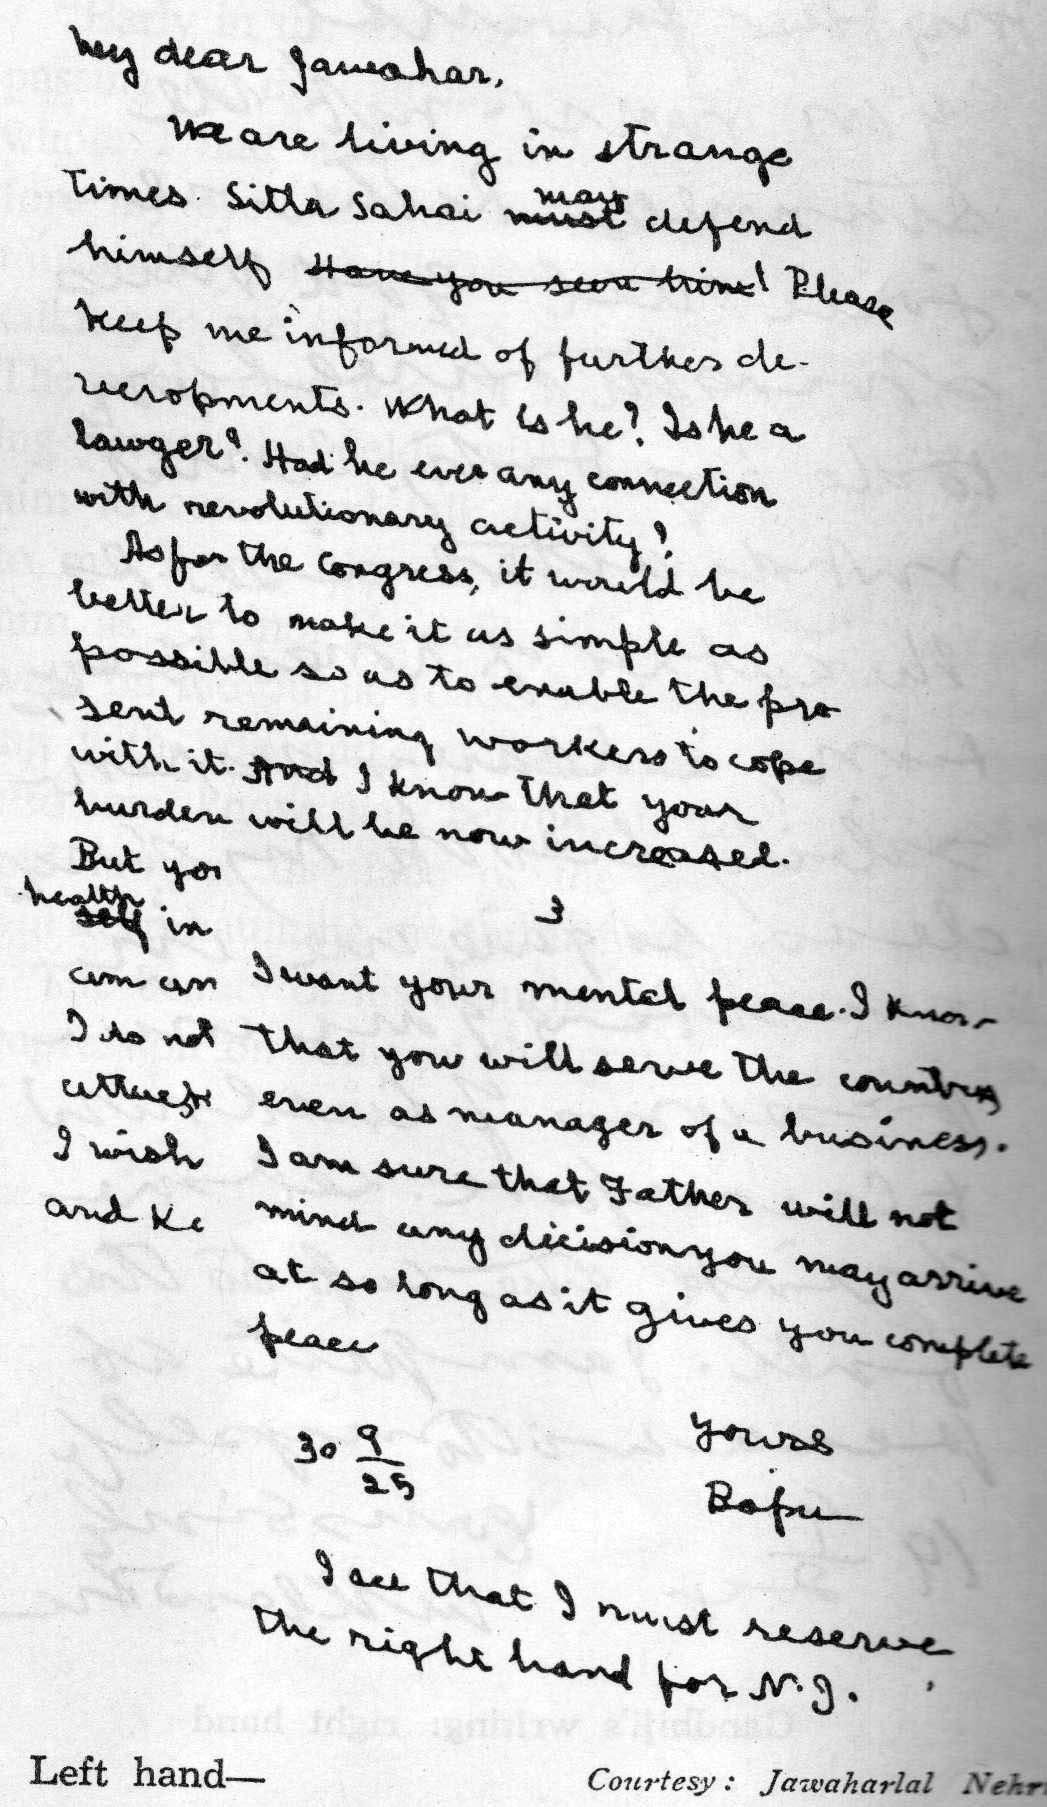 My dear Jawahar,
We are living in strange
times. Sitla Sahai must may defend
himself. Have you seen him! Please
keep me informed of further de-
velopments. What is he? Is he a
lawyer? Had he ever any connection
with revolutionary activity?
As for the Congress, it would be
better to make it as simple as
possible so as to enable the pre
sent remaining workers to cope
with it. And I know that your
burden will be now increased.
But you
health
self in
am an
I do not
I wish
and Ke
3
I want your mental peace. I know
that you will serve the country
even as manager of a business.
I am sure that Father will not
mind any decision you may arrive
at so long as it gives you complete
peace
30 9/25
Yours
Bapu
I see that I must reserve
the right hand for N. J.
Left hand—
Courtesy: Jawaharlal Nehr